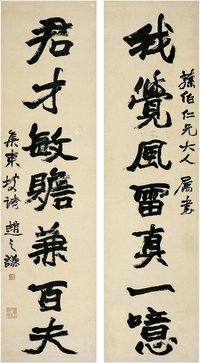 我覺風雷真一噫
蘇伯仁兄大人屬書
君才敏贍兼百夫
集東坡詩趙之謙